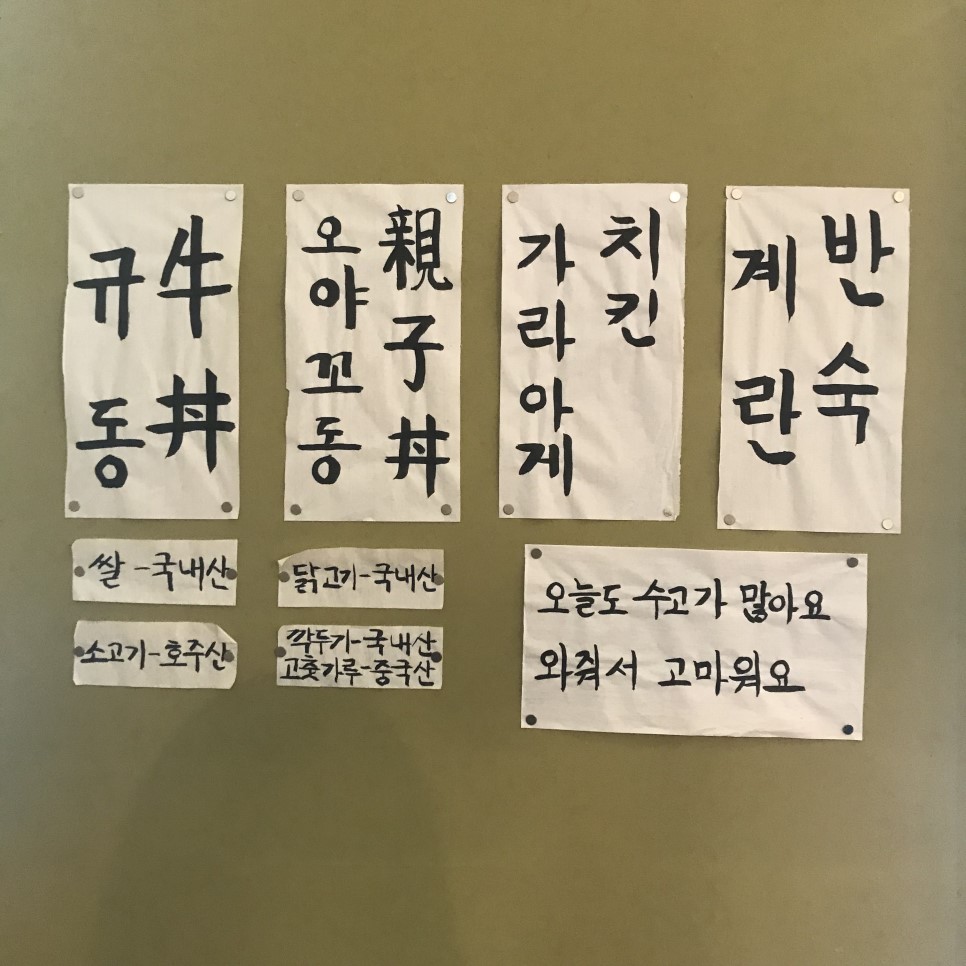 牛丼
규동
親子丼
오야꼬동
치킨
가라아게
반숙
계란
쌀-국내산
소고기-호주산
닭고기-국내산
깍두기-국내산
고춧가루-중국산
오늘도 수고가 많아요
와줘서 고마워요